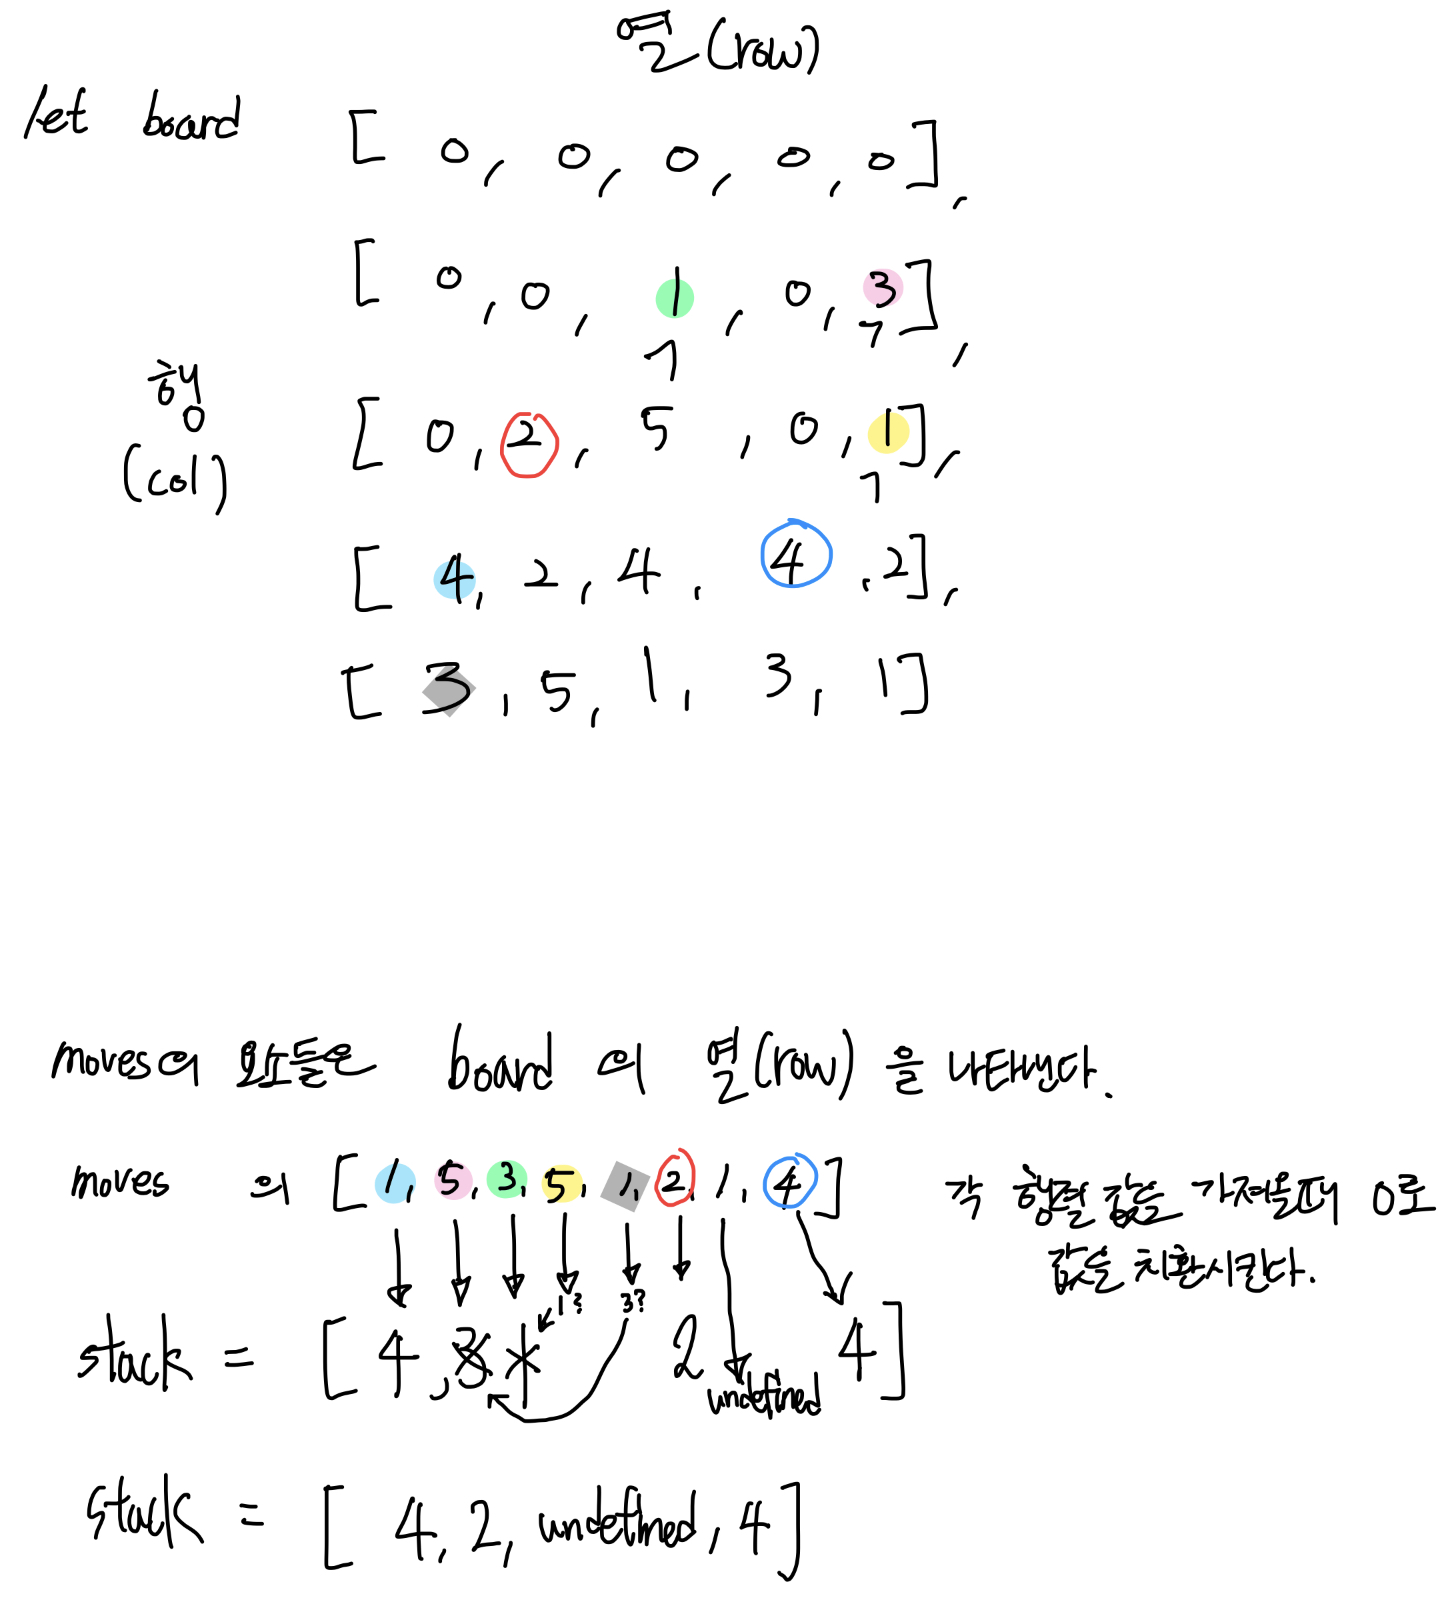 열(row)
let board [ 0, 0, 0, 0, 0],
[ 0, 0, 1, 0, 3],
7 7
행
(col)
[ 0, 2, 5, 0, 1],
7
[ 4, 2, 4, 4, 2],
[ 3, 5, 1, 3, 1]
moves의 요소들은 board 의 열(row) 을 나타낸다.
moves 의 [ 1, 5, 3, 5, 1, 2, 1, 4 ] 각 행렬 값을 가져올때 0로
값을 치환시킨다.
1? 3?
stack = [ 4, 3 1 2 undefined 4 ]
stack = [ 4, 2, undefined, 4 ]